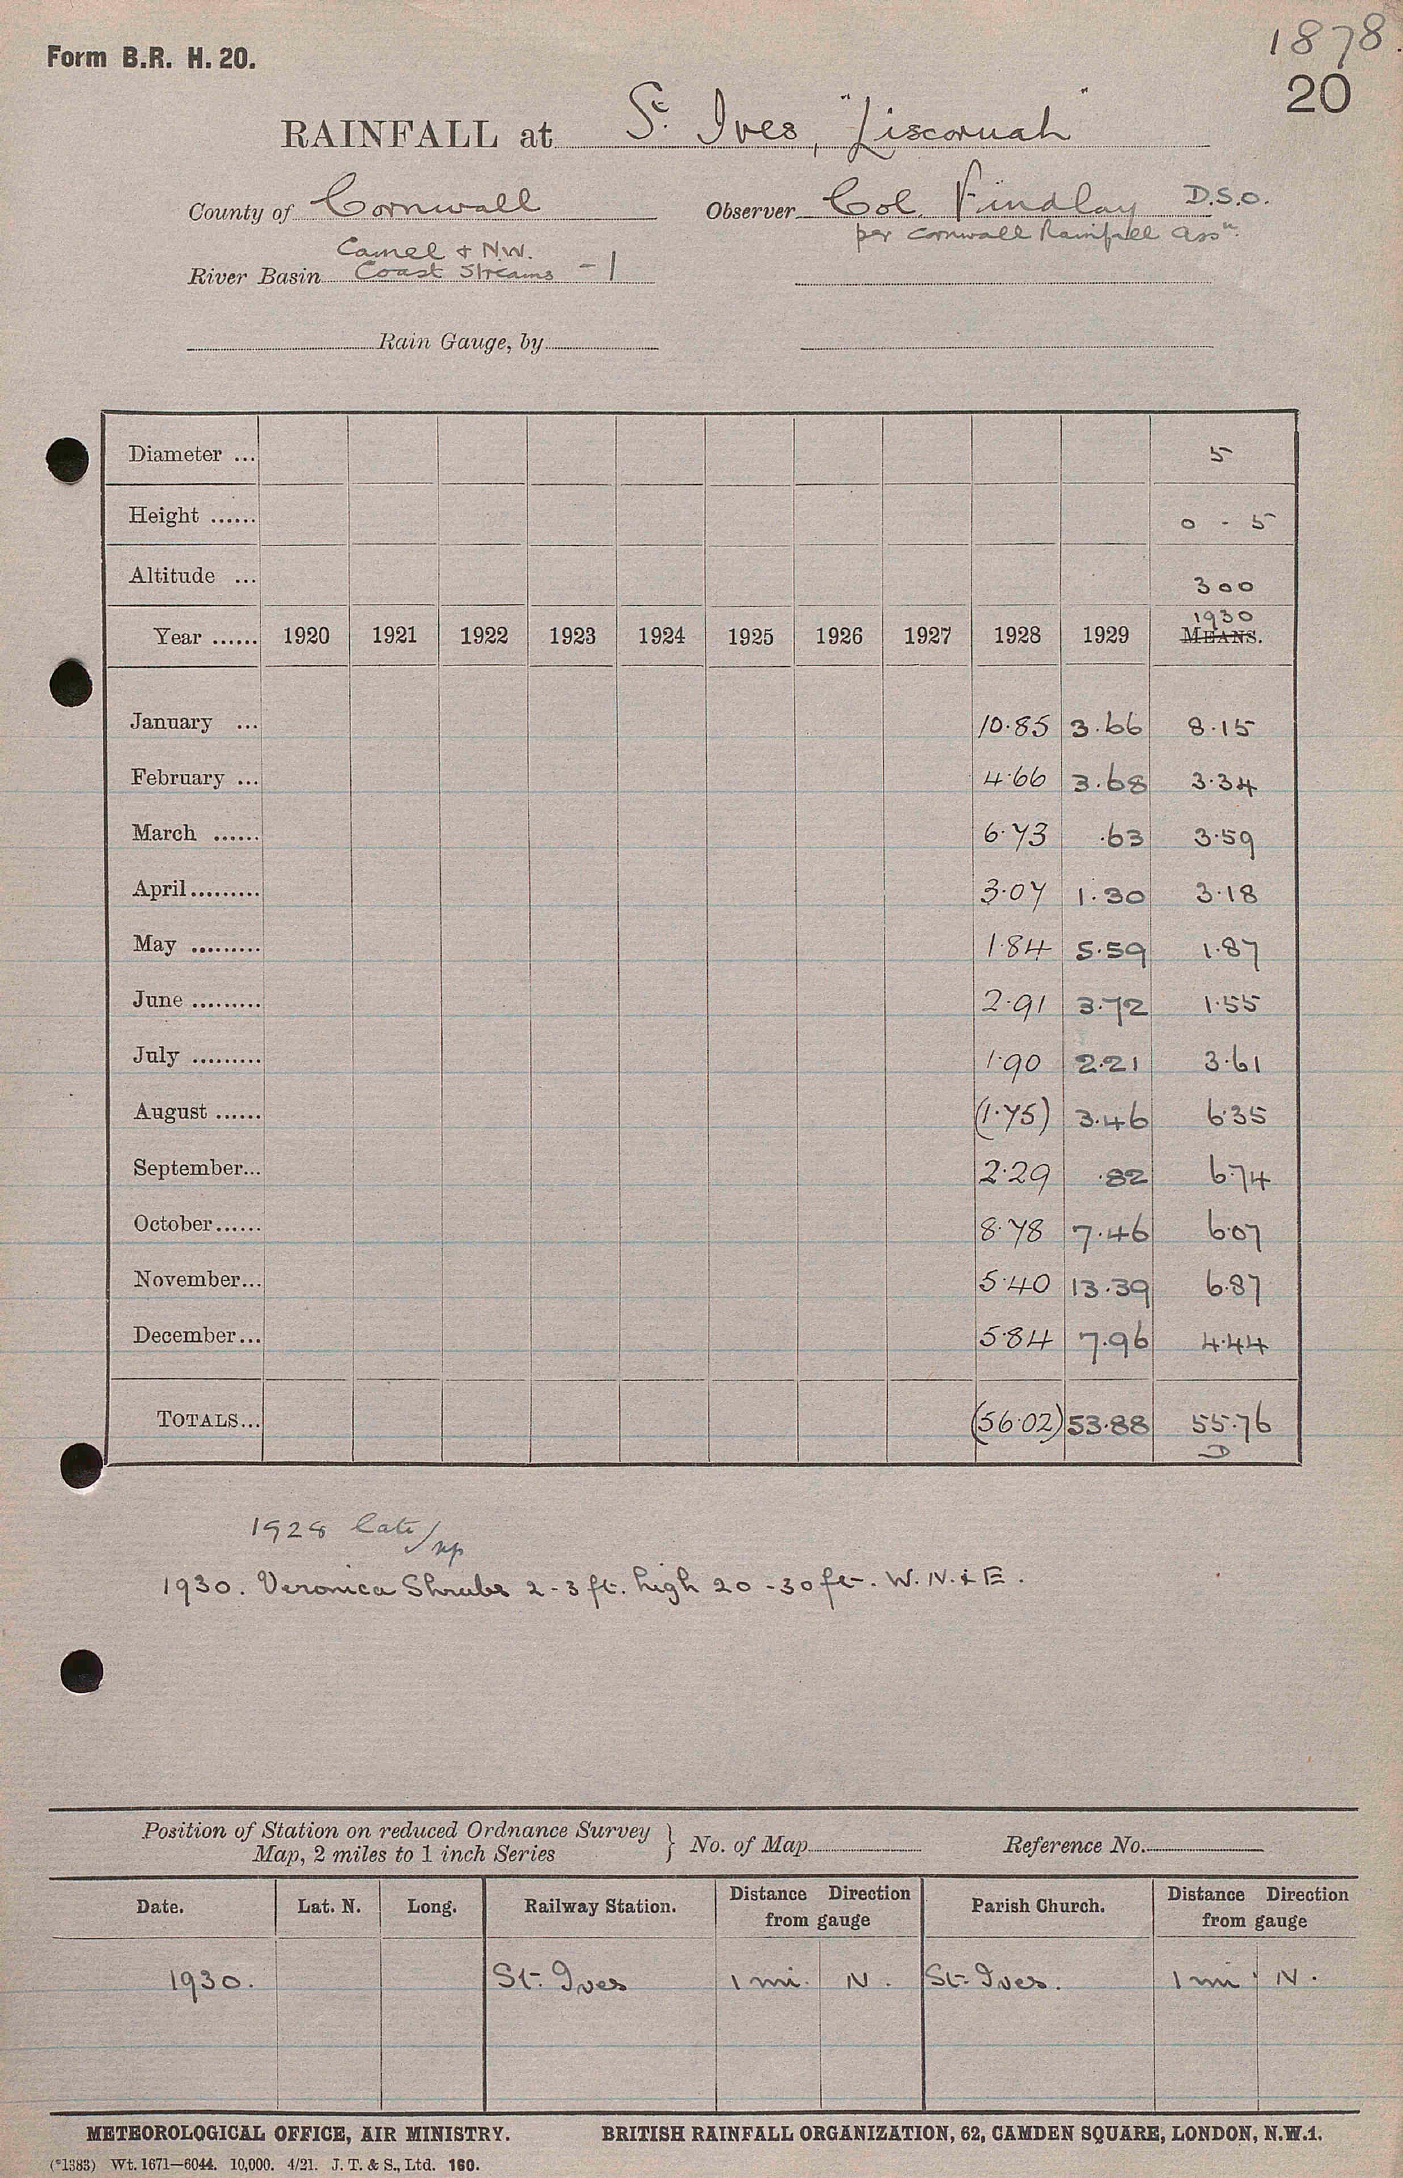 1878.
Form B.R. H. 20.
20
RAINFALL at St. Ives, "Liscornah"
County of Cornwall Observer Col. Findlay D.S.O.
per Cornwall Rainfall Assn.
Camel & N.W.
River Basin Coast Streams - 1
Rain Gauge, by
Diameter ... 5
Height ...... 0 - 5
Altitude ... 300
1930
Year ...... 1920 1921 1922 1923 1924 1925 1926 1927 1928 1929 MEANS.
January ... 10.85 3.66 8.15
February ... 4.66 3.68 3.34
March ...... 6.73 .63 3.59
April ......... 3.07 1.30 3.18
May ......... 1.84 5.59 1.87
June ......... 2.91 3.72 1.55
July ......... 1.90 2.21 3.61
August ...... (1.75) 3.46 6.35
September... 2.29 .82 6.74
October...... 8.78 7.46 6.07
November... 5.40 13.39 6.87
December... 5.84 7.96 4.44
TOTALS... (56.02) 53.88 55.76
D
1928 late/np
1930. Veronica Shrubs 2-3 ft. high 20-30 ft. W. N. & E.
Position of Station on reduced Ordnance Survey
Map, 2 miles to 1 inch Series } No. of Map Reference No.
Date. Lat. N. Long. Railway Station. Distance Direction from gauge Parish Church. Distance Direction from gauge
1930. St. Ives 1 mi. N. St. Ives. 1 mi. N.
METEOROLOGICAL OFFICE, AIR MINISTRY. BRITISH RAINFALL ORGANIZATION, 62, CAMDEN SQUARE, LONDON, N.W.1.
(*1383) Wt. 1671—6044. 10,000. 4/21. J. T. & S., Ltd. 160.